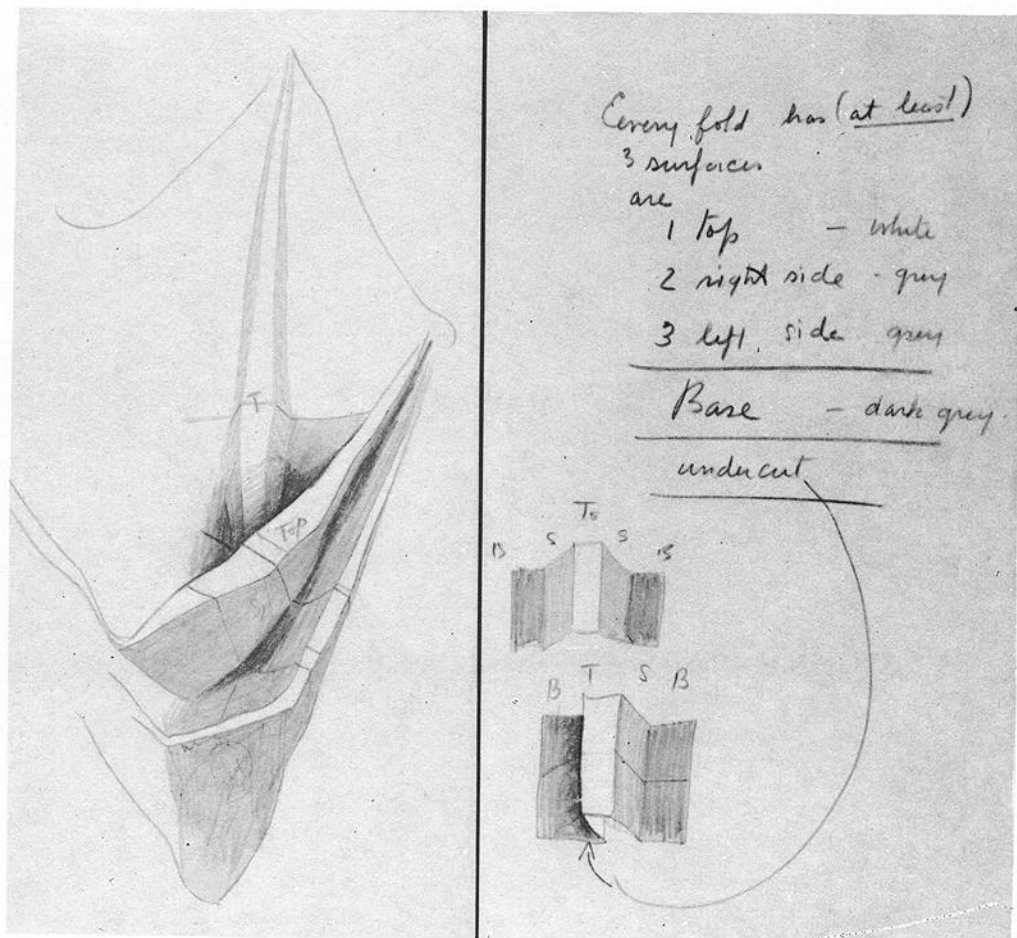 Every fold has (at least)
3 surfaces
are
1 top - white
2 right side - grey
3 left side grey
Base - dark grey
undercut
To
B S S B
B T S B
T
Top
S